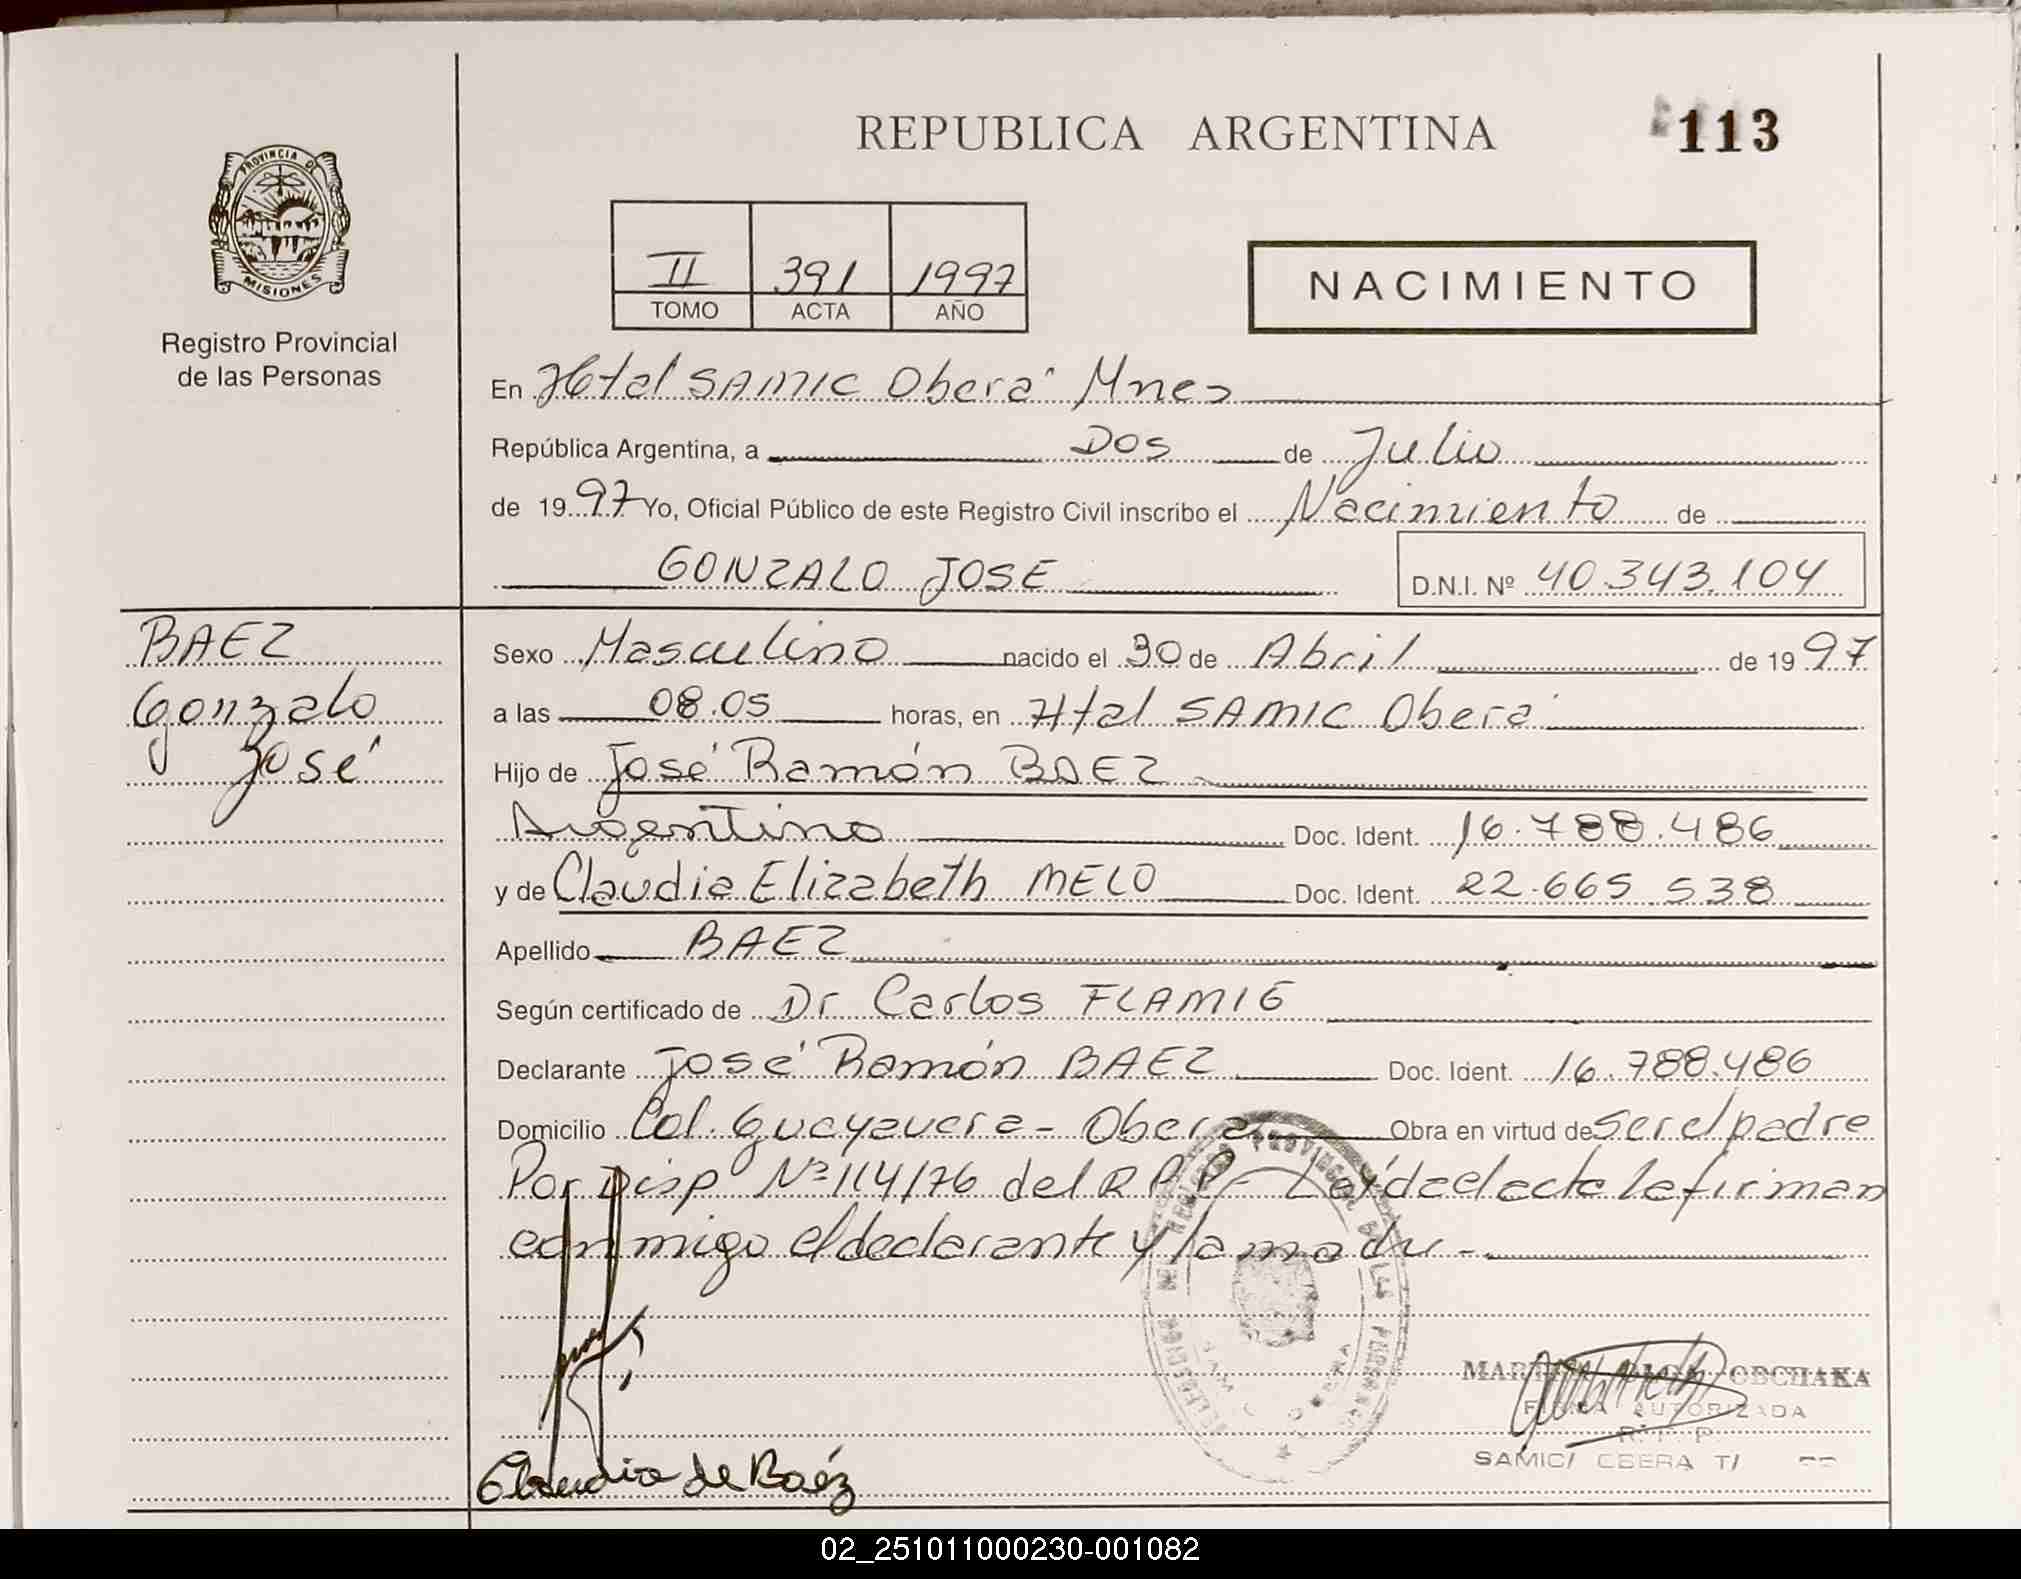 REPUBLICA ARGENTINA
113
PROVINCIA DE
MISIONES
Registro Provincial
de las Personas
II 391 1997
TOMO ACTA AÑO
NACIMIENTO
En Htal SAMIC Oberá Mnes
República Argentina, a Dos de Julio
de 1997 Yo, Oficial Público de este Registro Civil inscribo el Nacimiento de
GONZALO JOSE D.N.I. Nº 40.343.104
BAEZ
Gonzalo
José
Sexo Masculino nacido el 30 de Abril de 1997
a las 08.05 horas, en Htal SAMIC Oberá
Hijo de José Ramón BAEZ
Argentino Doc. Ident. 16.788.486
y de Claudia Elizabeth MELO Doc. Ident. 22.665.538
Apellido BAEZ
Según certificado de Dr Carlos FLAMIG
Declarante José Ramón BAEZ Doc. Ident. 16.788.486
Domicilio Col. Guayavera - Oberá Obra en virtud de ser el padre
Por Disp Nº 114/76 del R P P - Leída el acta la firman
conmigo el declarante y la madre -
OBCHAKA
FIRMA AUTORIZADA
R. P. P
SAMIC/ OBERA
Claudia de Baéz
02_251011000230-001082